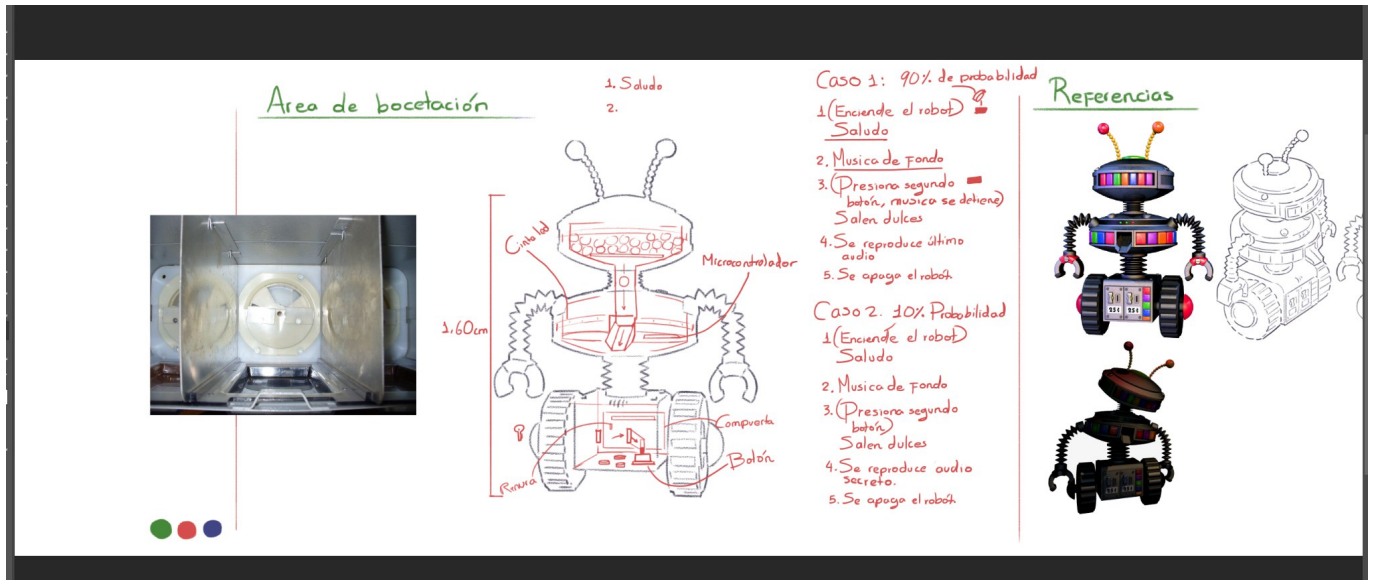 Area de bocetación
1. Saludo
2.
1,60cm
Microcontrolador
Compuerta
Botón
Ranura
Caso 1: 90% de probabilidad
1 (Enciende el robot)
Saludo
2. Musica de Fondo
3. (Presiona segundo
botón, musica se detiene)
Salen dulces
4. Se reproduce último
audio
5. Se apaga el robot
Caso 2. 10% Probabilidad
1 (Enciende el robot)
Saludo
2. Musica de Fondo
3. (Presiona segundo
botón)
Salen dulces
4. Se reproduce audio
secreto.
5. Se apaga el robot
Referencias
25¢ 25¢